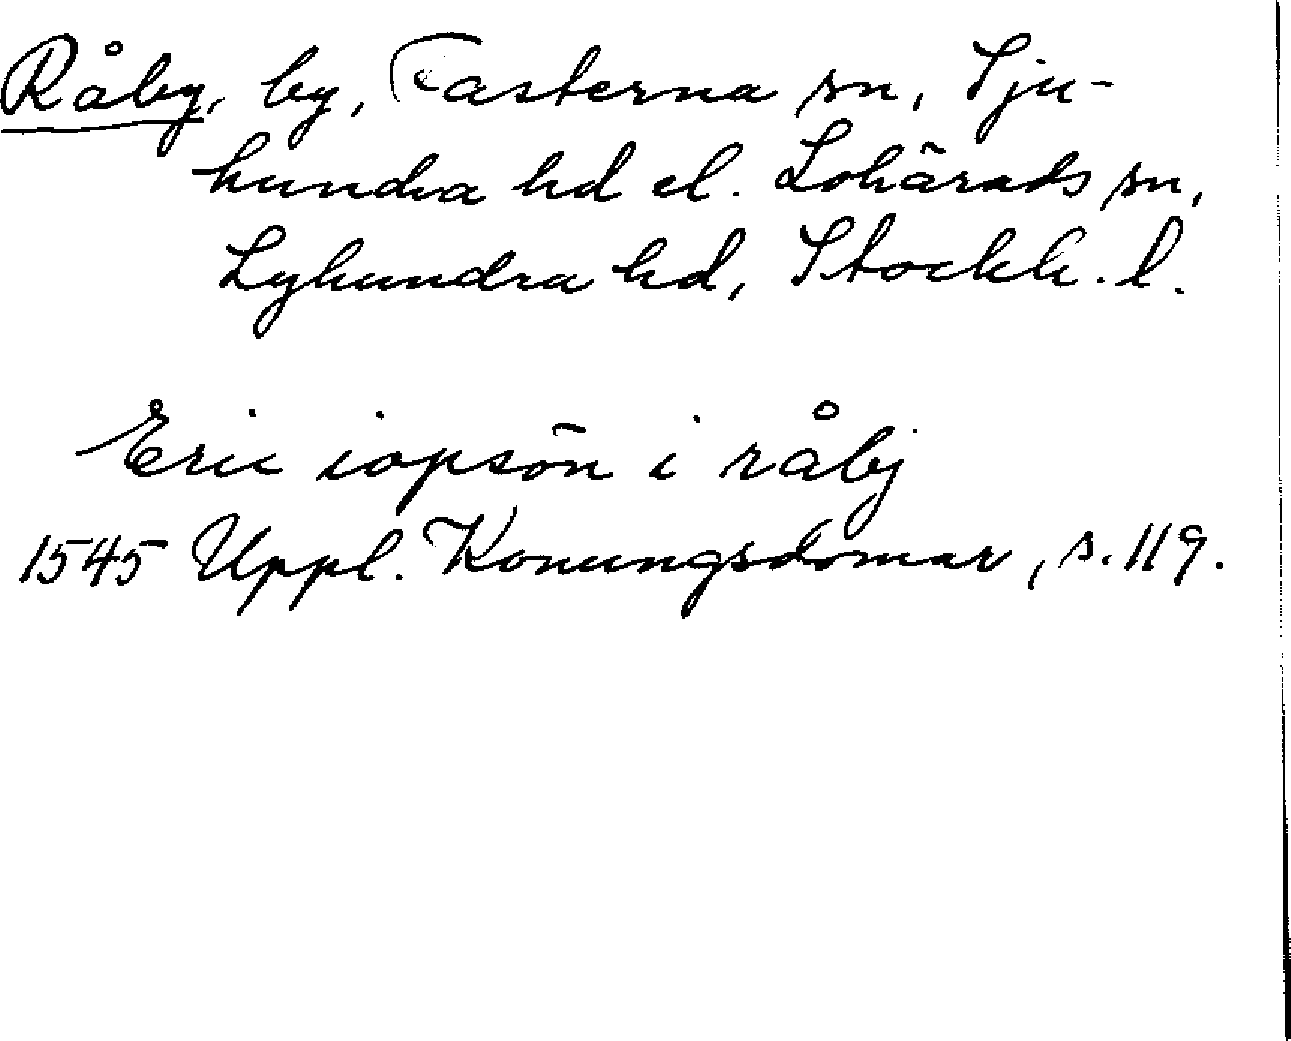 Råby, by, Fasterna sn, Sju-
hundra hd el. Lohärads sn,
Lyhundra hd, Stockh. l.
Eric iopsön i råbij
1545 Uppl. Konungsdomar, s. 119.